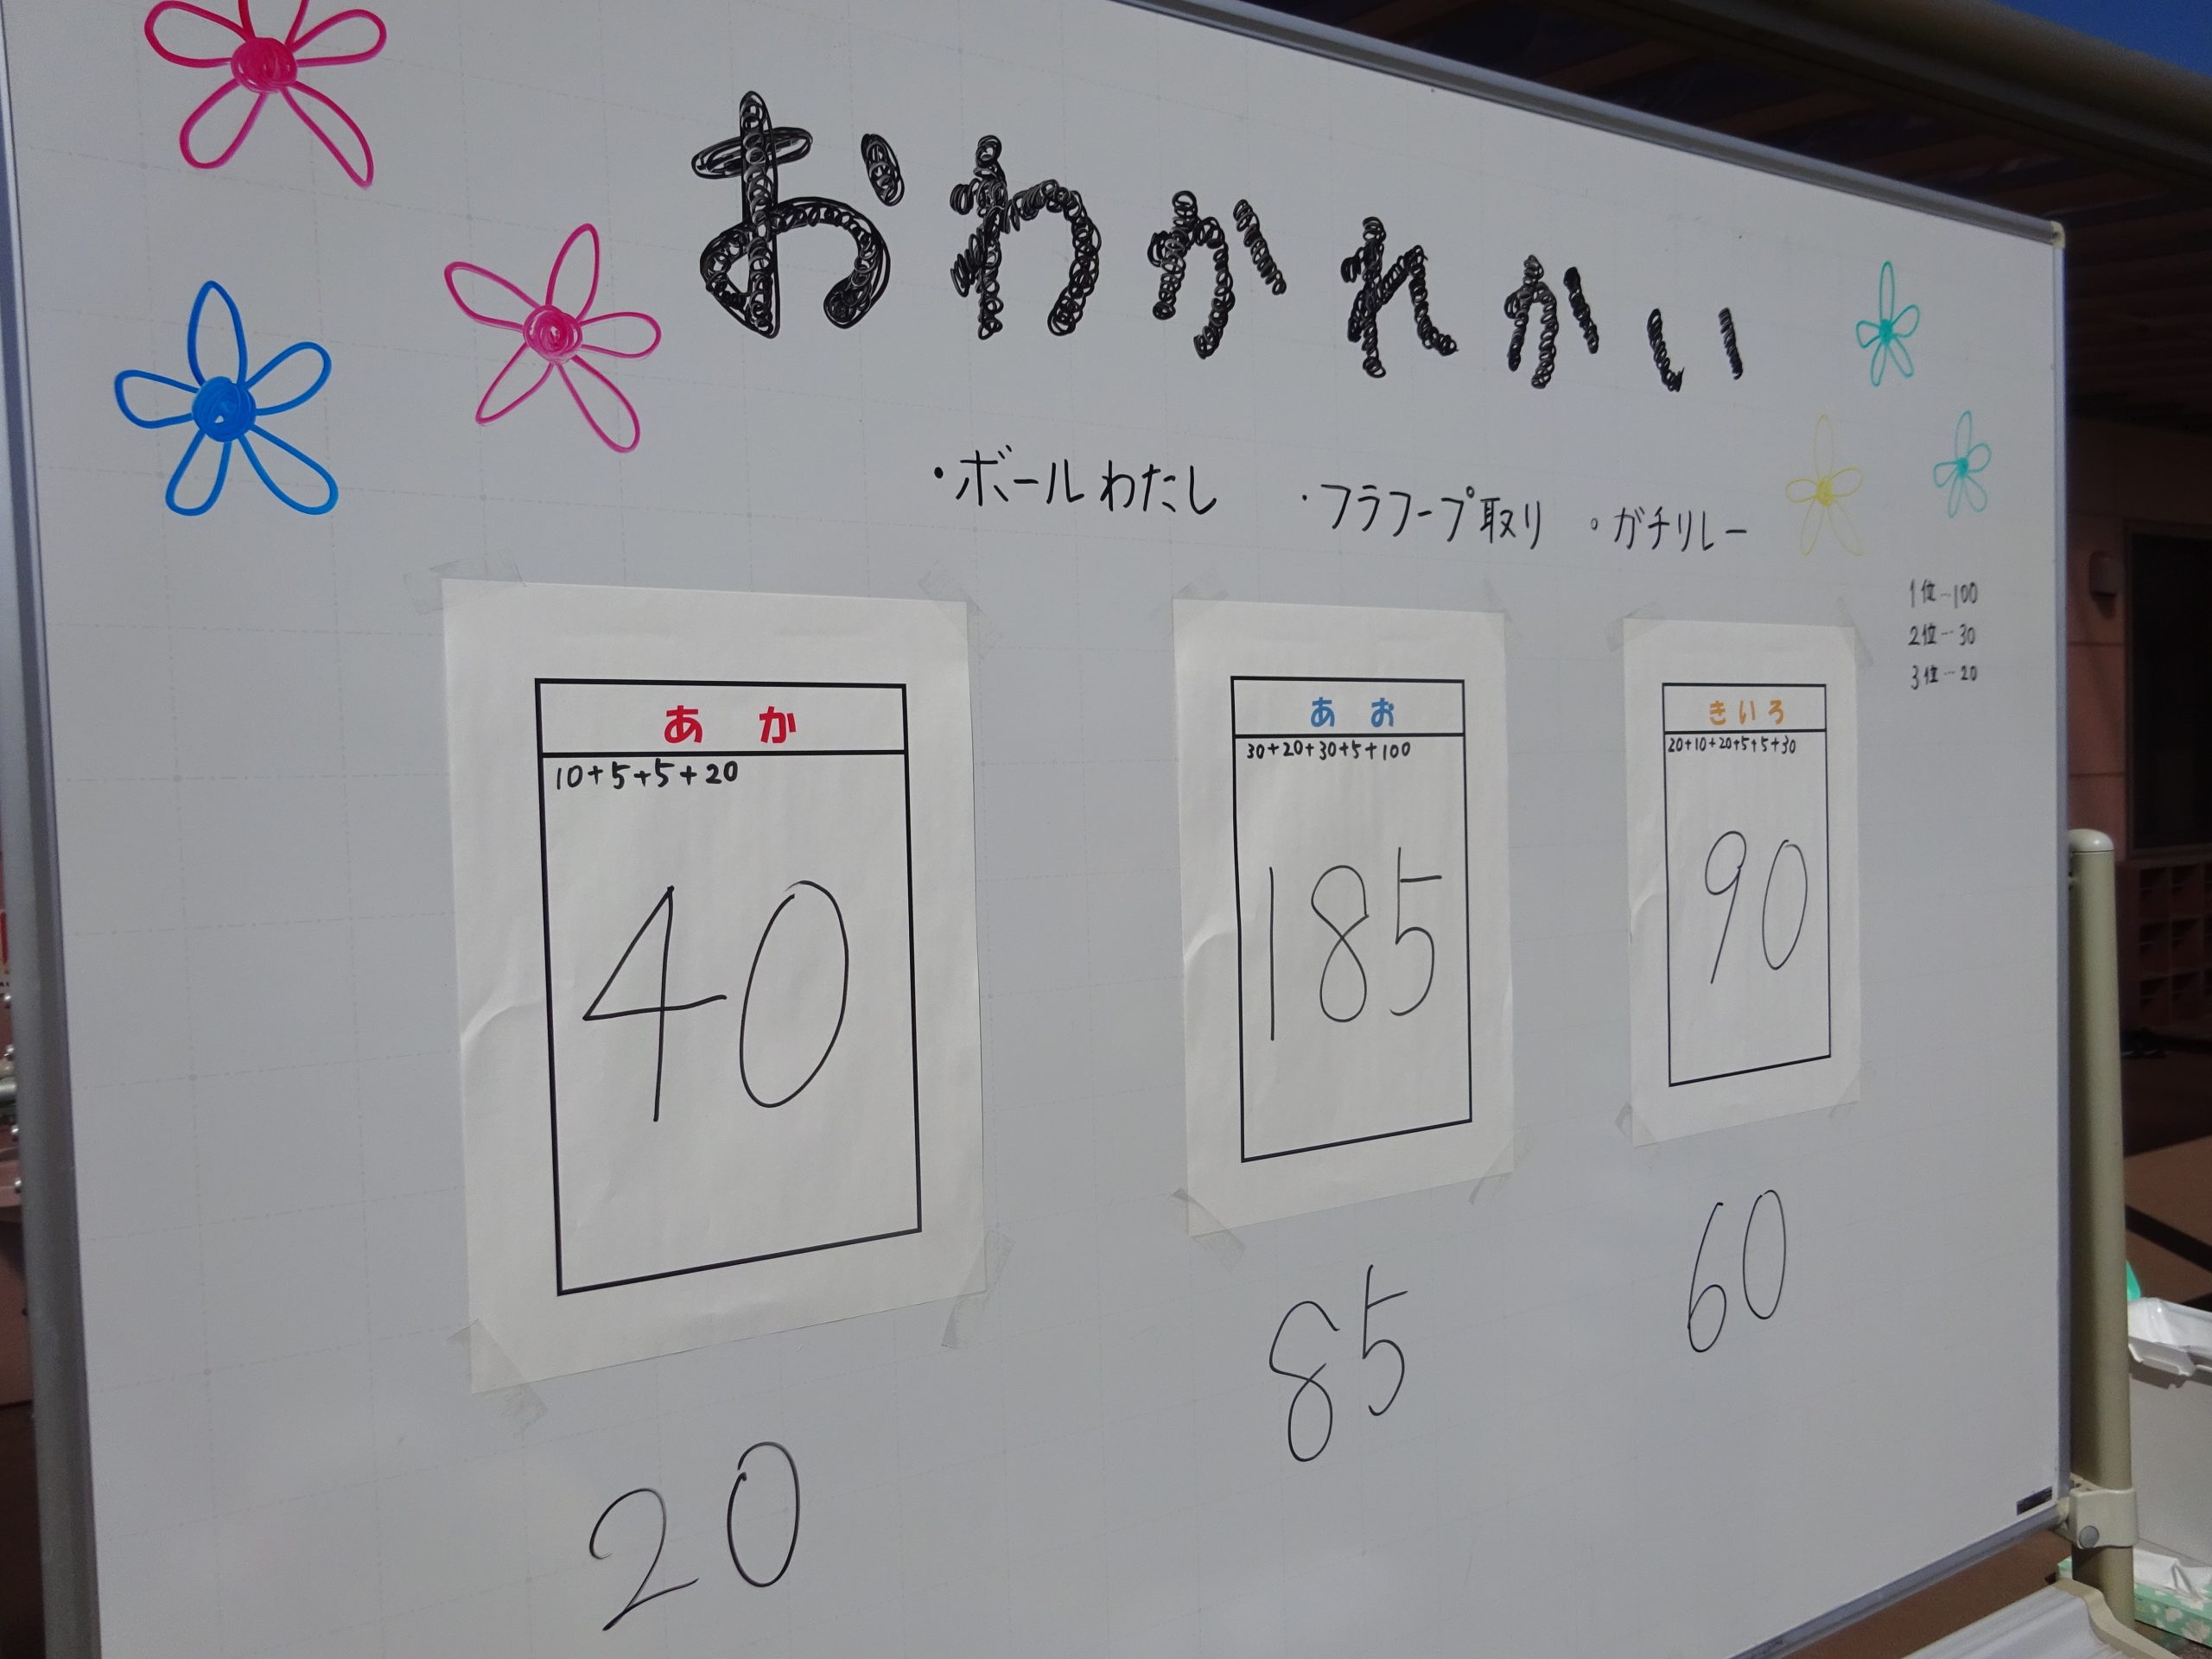 おわかれかい
・ボールわたし ・フラフープ取り ・ガチリレー
1位…100
2位…30
3位…20
あか
10+5+5+20
40
20
あお
30+20+30+5+100
185
85
きいろ
20+10+20+5+5+30
90
60